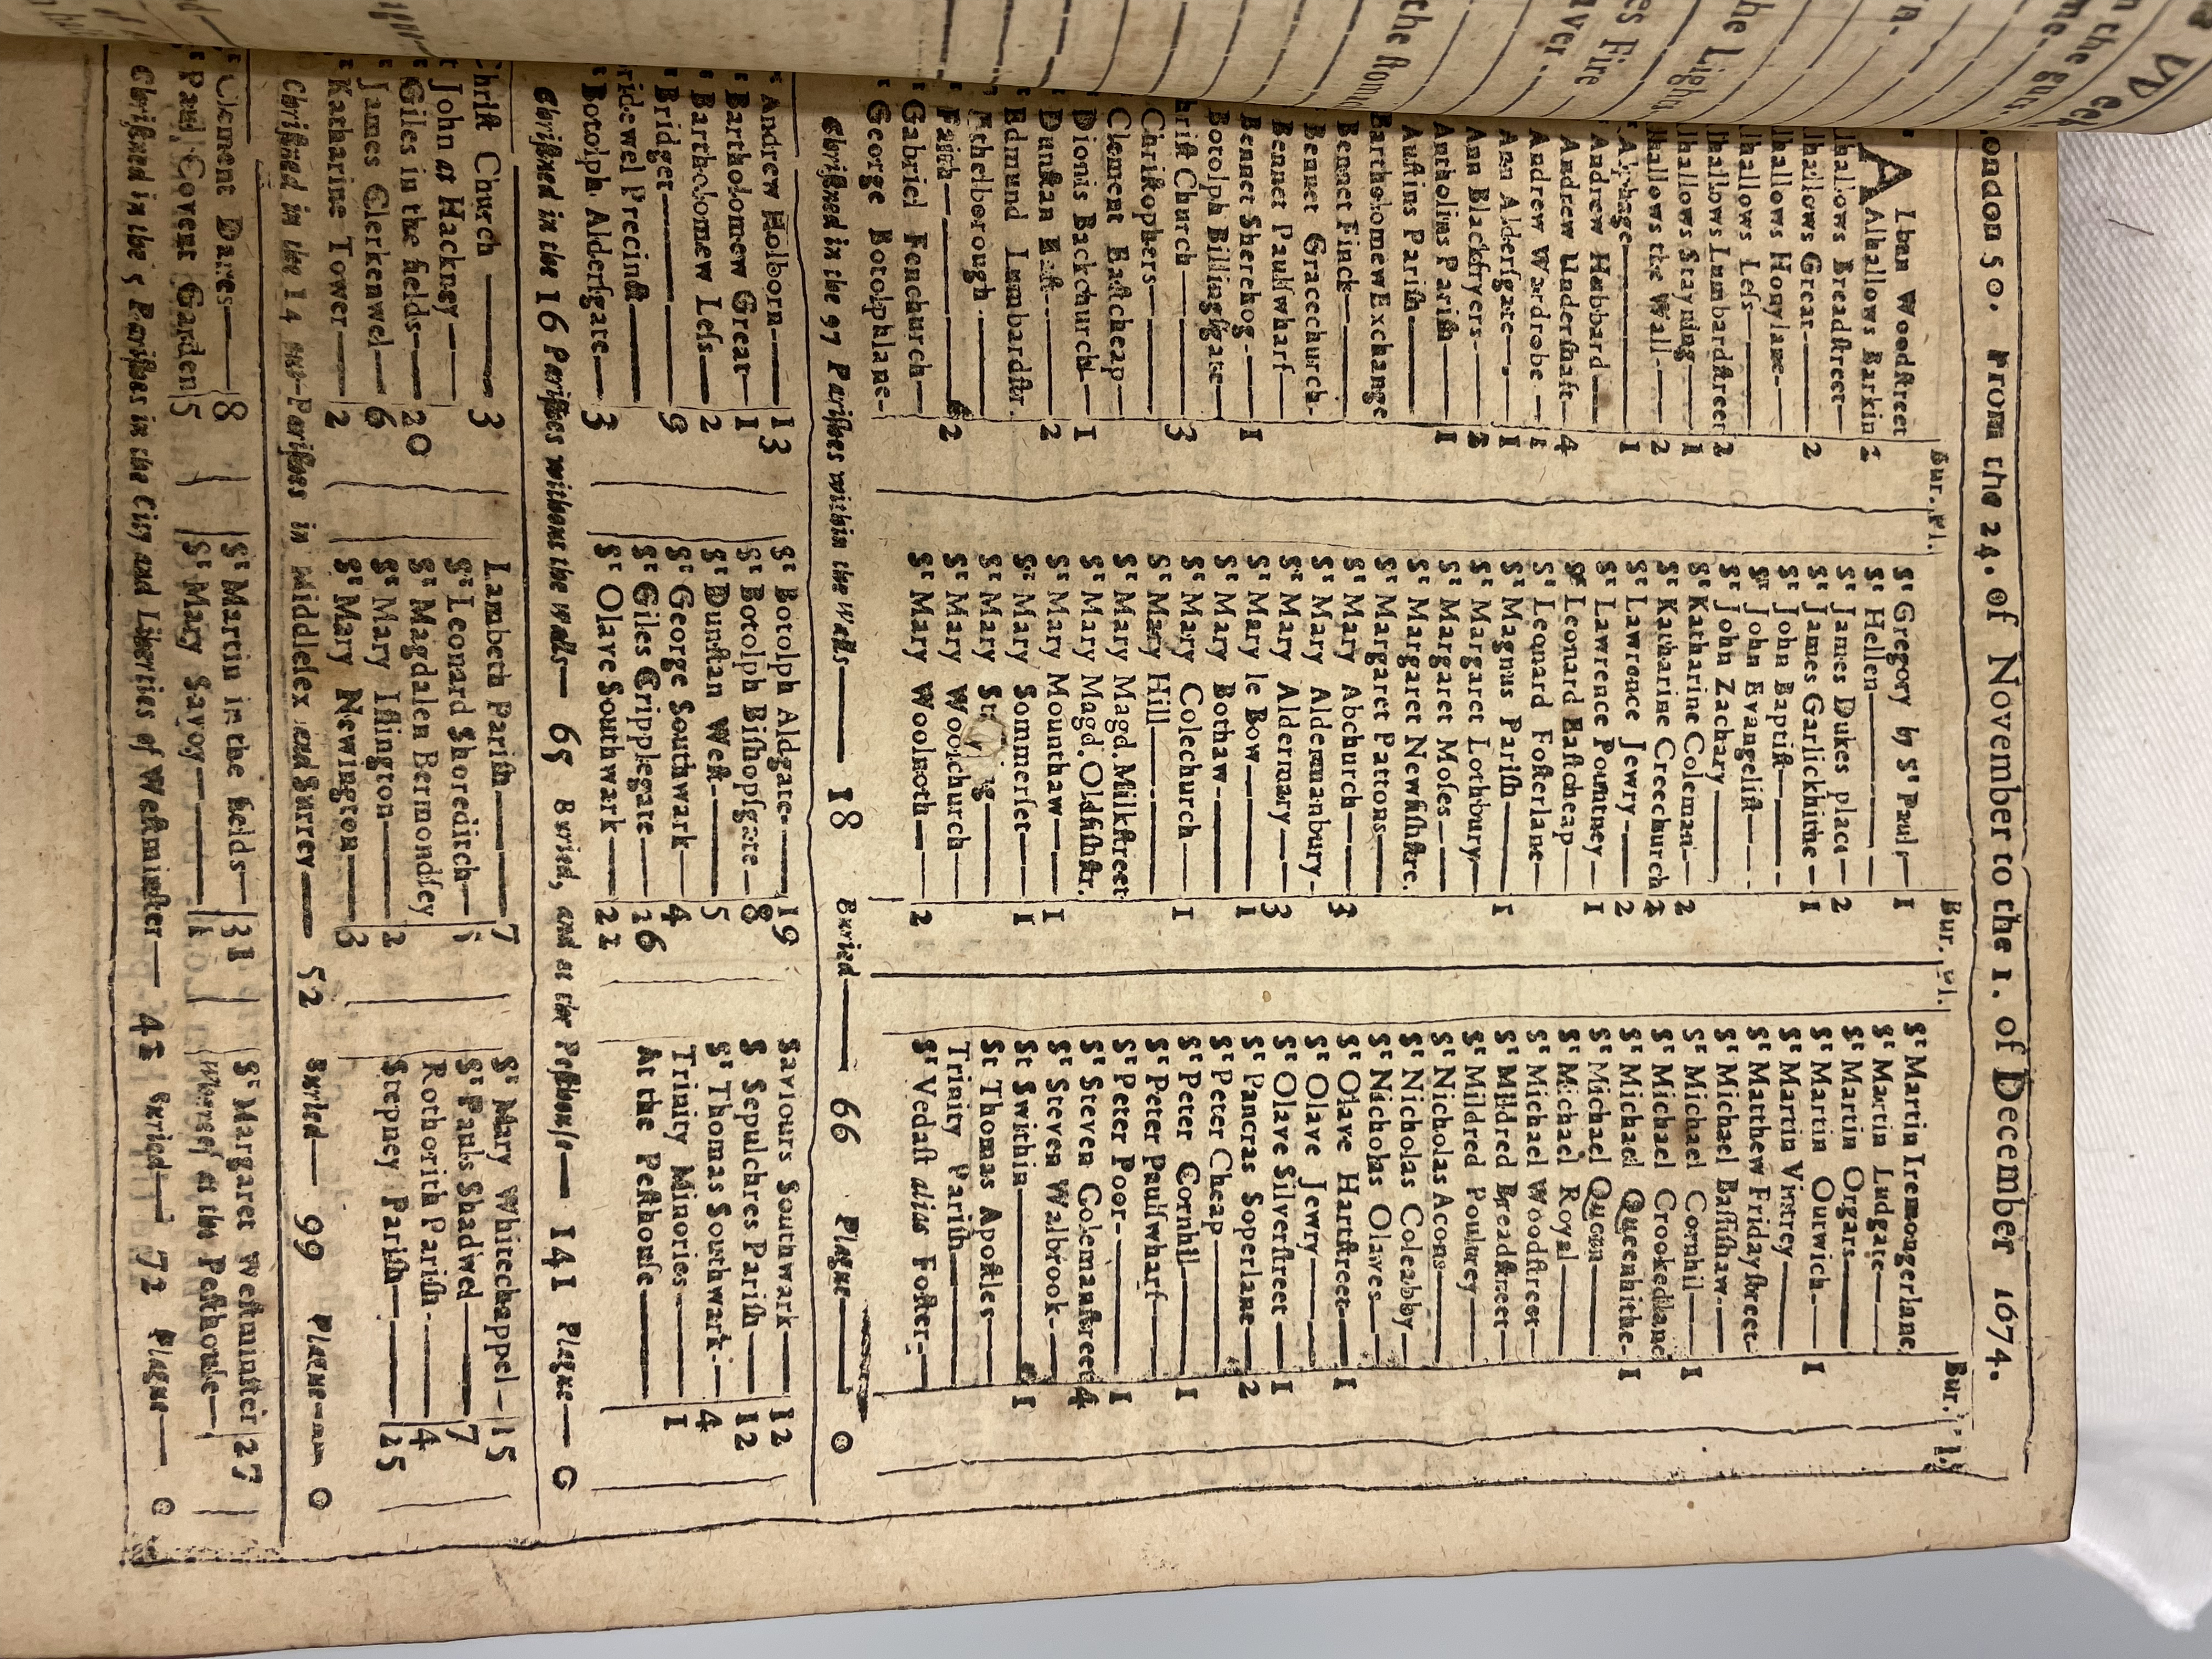 London 50. From the 24. of November to the 1. of December 1674.
Bur. Pl.
Alban Woodſtreet
Alhallows Barkin 2
lhallows Breadſtreet
lhallows Great 2
lhallows Honylane
lhallows Leſs
lhallows Lumbardſtreet 2
lhallows Stayning 1
lhallows the Wall 2
Alphage 1
Andrew Hubbard
Andrew Underſhaft 4
Andrew Wardrobe 1
Ann Alderſgate 1
Ann Blackfryers 2
Antholins Pariſh 1
Auſtins Pariſh
Bartholomew Exchange
Bennet Finck
Bennet Gracechurch
Bennet Paulſwharf
Bennet Sherehog 1
Botolph Billingſgate
hriſt Church 3
Chriſtophers
Clement Eaſtcheap
Dionis Backchurch 1
Dunſtan Eaſt 2
Edmund Lumbardſtr.
Ethelborough
Faith 2
Gabriel Fenchurch
George Botolphlane
Bur. Pl.
St Gregory by St Paul 1
St Hellen
St James Dukes place 2
St James Garlickhithe 1
St John Baptiſt
St John Evangeliſt
St John Zachary
St Katharine Coleman 2
St Katharine Creechurch 2
St Lawrence Jewry 2
St Lawrence Pountney 1
St Leonard Eaſtcheap
St Leonard Foſterlane
St Magnus Pariſh 1
St Margaret Lothbury
St Margaret Moſes
St Margaret Newfiſhſtre.
St Margaret Pattons
St Mary Abchurch 3
St Mary Aldermanbury
St Mary Aldermary 3
St Mary le Bow 1
St Mary Bothaw
St Mary Colechurch 1
St Mary Hill
St Mary Magd. Milkſtreet
St Mary Magd. Oldfiſhſtr.
St Mary Mounthaw 1
St Mary Sommerſet 1
St Mary
St Mary Woolchurch
St Mary Woolnoth 2
Bur. Pl.
St Martin Iremongerlane
St Martin Ludgate
St Martin Orgars
St Martin Outwich 1
St Martin Vintrey
St Matthew Fridayſtreet
St Michael Baſſiſhaw
St Michael Cornhil 1
St Michael Crookedlane
St Michael Queenhithe 1
St Michael Quern
St Michael Royal
St Michael Woodſtreet
St Mildred Breadſtreet
St Mildred Poultrey
St Nicholas Acons
St Nicholas Coleabby
St Nicholas Olaves
St Olave Hartſtreet 1
St Olave Jewry
St Olave Silverſtreet 1
St Pancras Soperlane 2
St Peter Cheap
St Peter Cornhil 1
St Peter Paulſwharf
St Peter Poor 1
St Steven Colemanſtreet 4
St Steven Walbrook
St Swithin 1
St Thomas Apoſtles
Trinity Pariſh
St Vedaſt alias Foſter
Chriſtned in the 97 Pariſhes within the Walls 18 Buried 66 Plague 0
Andrew Holborn 13
Bartholomew Great 1
Bartholomew Leſs 2
Bridget 9
ridewel Precinct
Botolph Alderſgate 3
St Botolph Aldgate 19
St Botolph Biſhopſgate 8
St Dunſtan Weſt 5
St George Southwark 4
St Giles Cripplegate 26
St Olave Southwark 22
Saviours Southwark 12
S Sepulchres Pariſh 12
St Thomas Southwark 4
Trinity Minories 1
At the Peſthouſe
Chriſtned in the 16 Pariſhes without the walls 65 Buried, and at the Peſthouſe 141 Plague 0
hriſt Church 3
John at Hackney
Giles in the fields 20
James Clerkenwel 6
Katharine Tower 2
Lambeth Pariſh 7
St Leonard Shoreditch
St Magdalen Bermondſey
St Mary Iſlington 2
St Mary Newington 3
St Mary Whitechappel 15
St Pauls Shadwel 7
Rothorith Pariſh 4
Stepney Pariſh 25
Chriſtned in the 14 out-Pariſhes in Middleſex and Surrey 52 Buried 99 Plague 0
Clement Danes 8
Paul Covent Garden 5
St Martin in the fields 31
St Mary Savoy 1
St Margaret Weſtminſter 27
Whereof at the Peſthouſe
Chriſtned in the 5 Pariſhes in the City and Liberties of Weſtminſter 42 Buried 72 Plague 0
the ſtone
aver.
es Fire
the Light
n the
Week